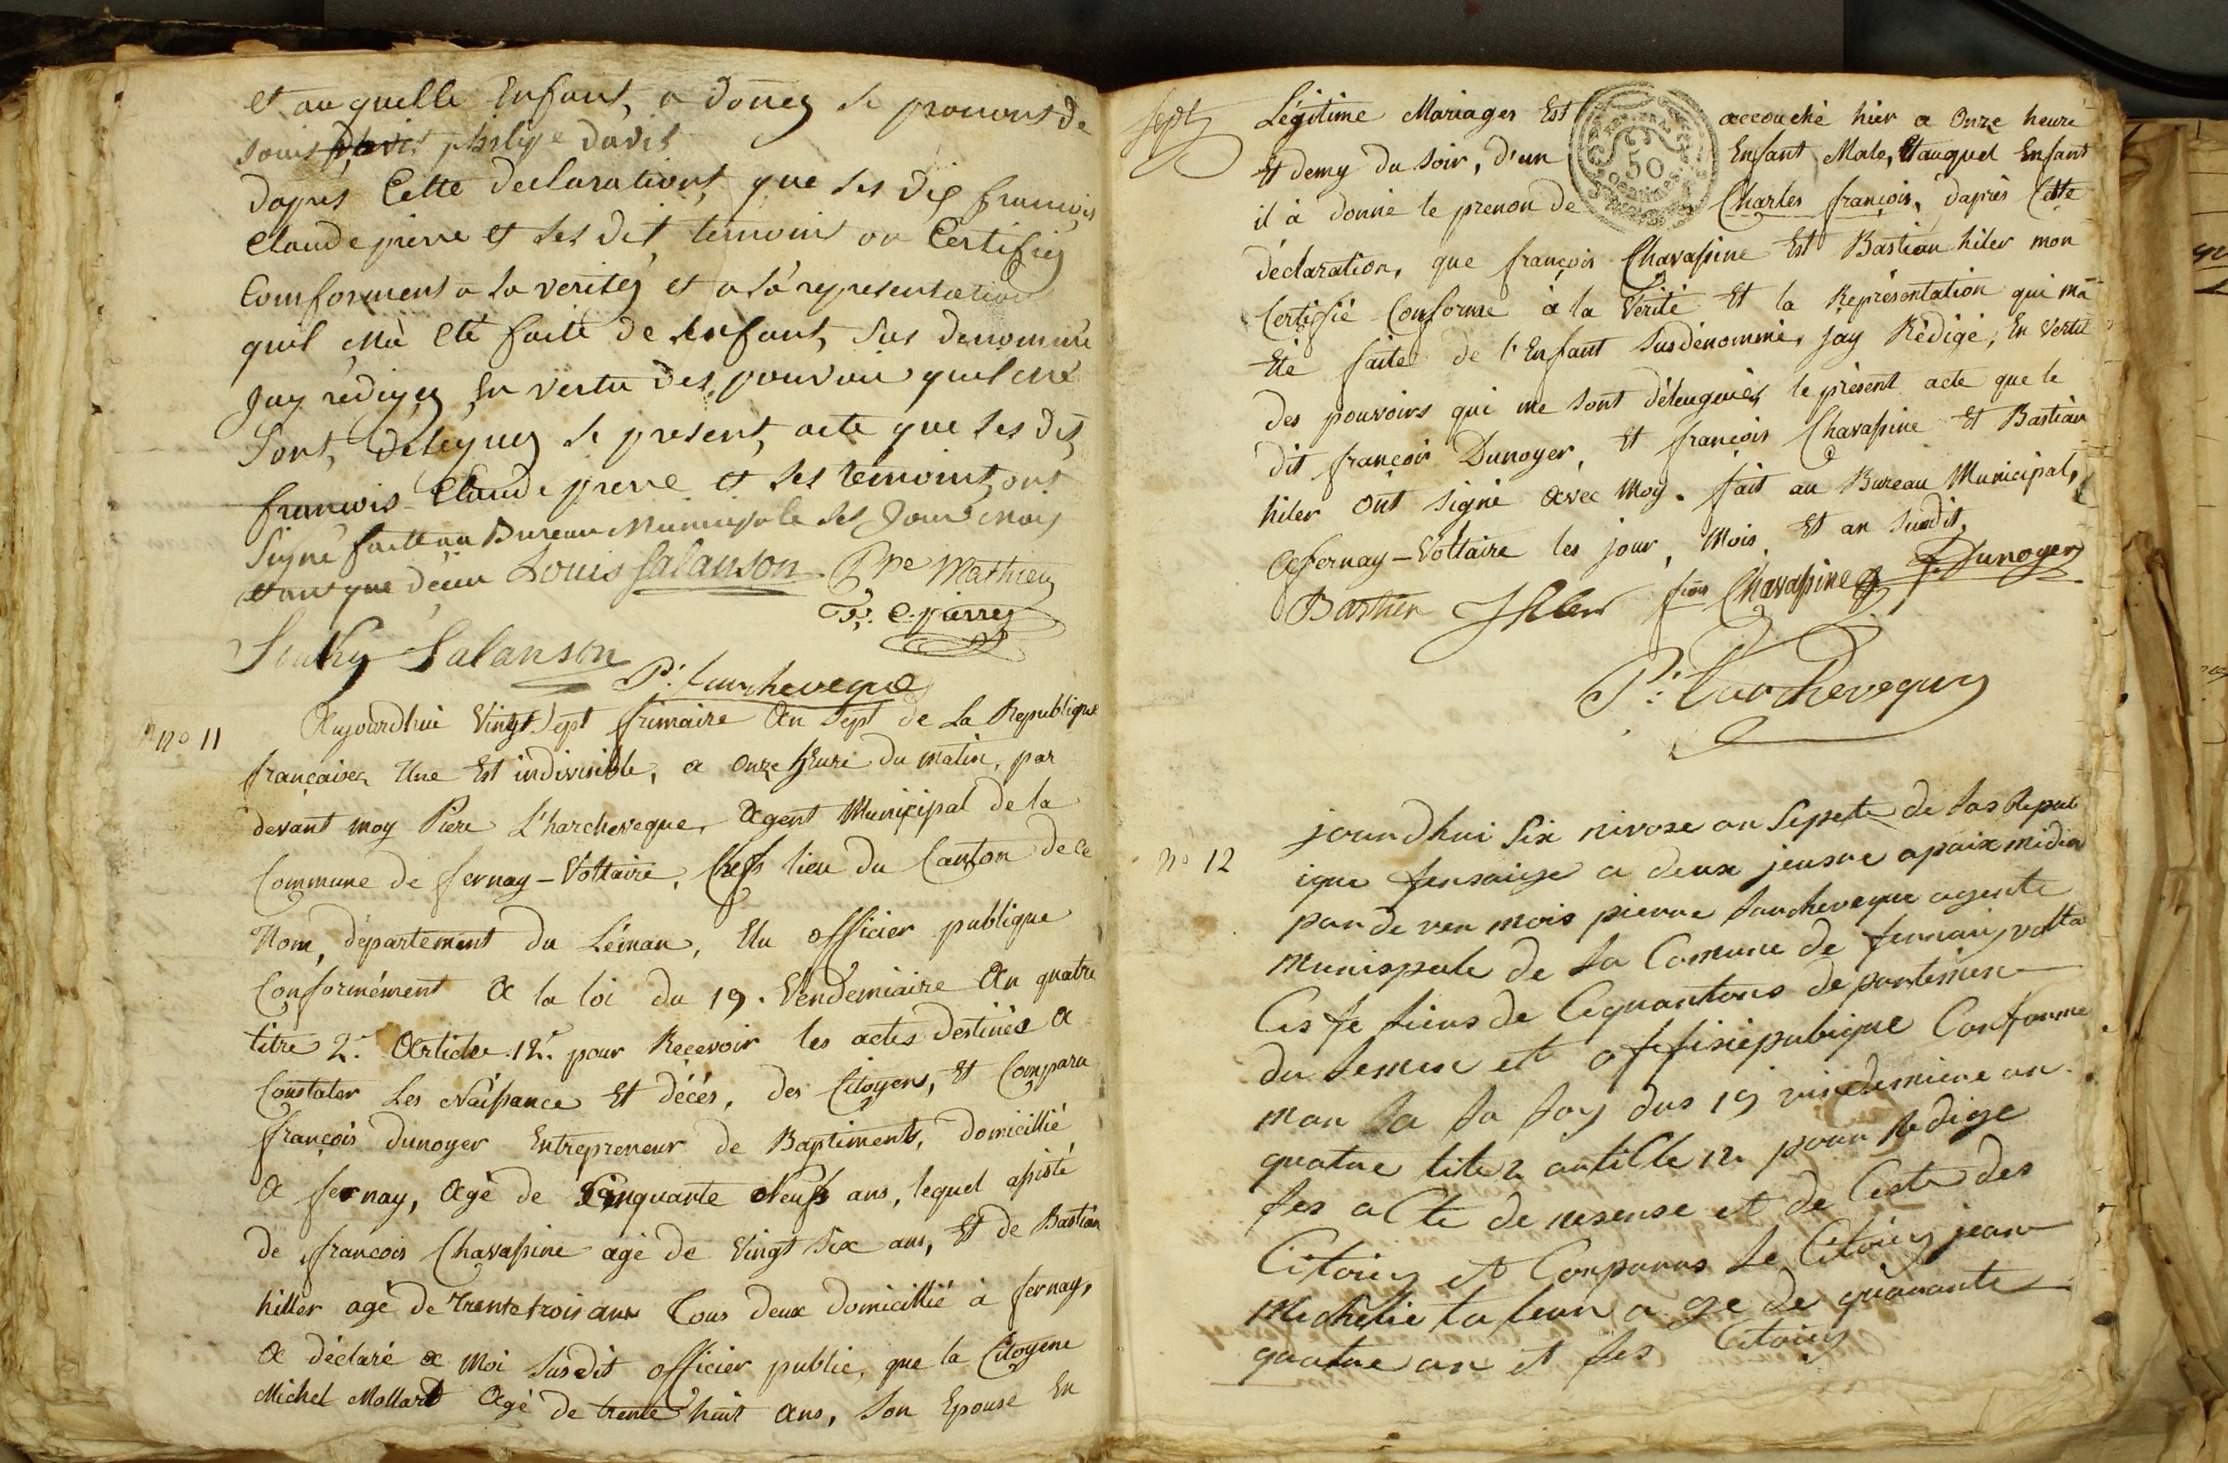 et auquelle Enfant, a donnez le pronont de
Louis philipe david
dapres Cette declarations, que les dit francois
Claude pierre et les dit temoint on Certifiez
Comforment a la veritez et a la representation
quil ma eté faite de lenfant, sus denommé
Jay rediges En vertu des pouvoir quil me
sont, deleguez le present, acte que les dit,
francois Claude pierre et les temoint, ont
Signé fait au Bureau Municipale les Jour mois
et an que deçu Louis Salanson Pre Mathieu
F. C. pierre
Salanson
P: Larcheveque
nno 11
Aujourdhui Vingt Sept frimaire An Sept de La Republique
françaisez Une Est indivisible, a onze heure du matin, par
devant moy Piere L'harcheveque, Agent Municipal de la
Commune de fernay-Voltaire, Chefs lieu du Canton de ce
Nom, département du Léman, Elu officier publique
Conformément A la loi du 19. Vendemiaire An quatre
titre 2.e Article 12.e pour Recevoir les actes destinés A
Constater Les Naissance Et décés, des Citoyens, Et Comparu
françois Dunoyer Entrepreneur de Baptiments, domicillié
A fernay, Agé de Cinquante Neufs ans, lequel assisté
de françois Chavassine agé de Vingt Six ans, Et de Bastian
hiller agé de Trente trois ans Tous deux domicillié à fernay,
A déclaré a moi Susdit officier public, que la Citoyene
Michel Mollard Agé de trente huit ans, Son Epouse En
sept
Légitime Mariages Est accouché hier a Onze heure
Et demy du soir, d'un Enfant Male, Et auquel Enfant
il à donné le prenon de Charles françois, daprès Cette
50
CENTIMES
déclaration, que françois Chavassine Est Bastian hiler mon
Certifié Conforme à la Vérité Et la Représentation qui ma
Eté faite de l'Enfant Susdénommé, jay Rédigé, En Vertu
des pouvoirs qui me sont délengués le présent acte que le
dit françois Dunoyer, Et françois Chavassine Et Bastian
hiler ont signé Avec Moy. fait au Bureau Municipal,
A fernay-Voltaire les jour, Mois, Et an Susdit,
Bastien Hiler fçois Chavassine F. Dunoyer
P: Larcheveque
no 12
jourdhui Six nivose an Sepete de las Repub
ique fransaise a deux jeusre apaix midis
par de ven mois pierre Larcheveque agente
munispale de la Comune de fernaij volta
Ces fe lieus de Cequantons de partemen
du lemen et offisiepubique Conforme
man la la Loy dus 19 vindemiere an
quatre tite 2 artille 12 pour Redige
les acte de nesense et de Ceste des
Citoiy et Conparus le Citoiy jean
Michelie tateran a ge de quarante
quatre an et les Citoiy